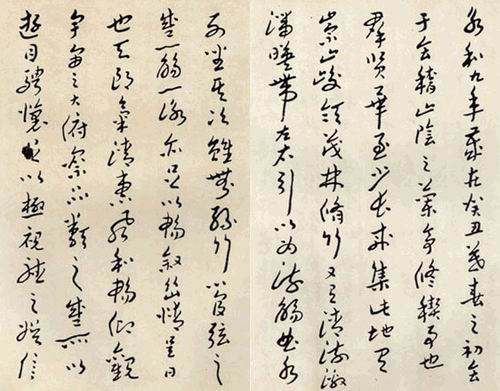 永和九年歲在癸丑暮春之初會
于會稽山陰之蘭亭修稧事也
羣賢畢至少長咸集此地有
崇山峻領茂林脩竹又有清流激
湍暎帶左右引以為流觴曲水
列坐其次雖無絲竹管弦之
盛一觴一詠亦足以暢敘幽情是日
也天朗氣清惠風和暢仰觀
宇宙之大俯察品類之盛所以
遊目騁懷足以極視聽之娛信